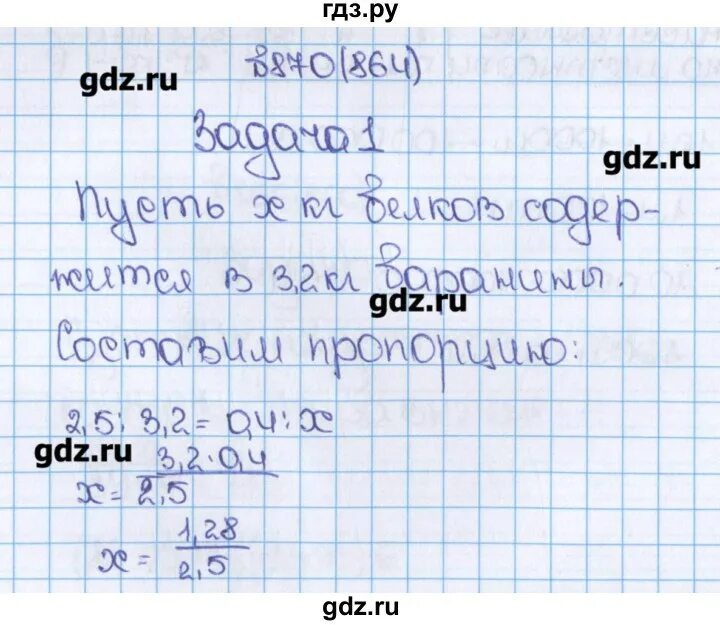 гдз.ру
В870(864)
gdz.ru
Задача 1
gdz.ru
Пусть х кг белков содер-
жится в 3,2кг баранины.
gdz.ru
Составим пропорцию:
2,5 : 3,2 = 0,4 : х
gdz.ru
х = 3,2 · 0,4 / 2,5
х = 1,28 / 2,5
gdz.ru